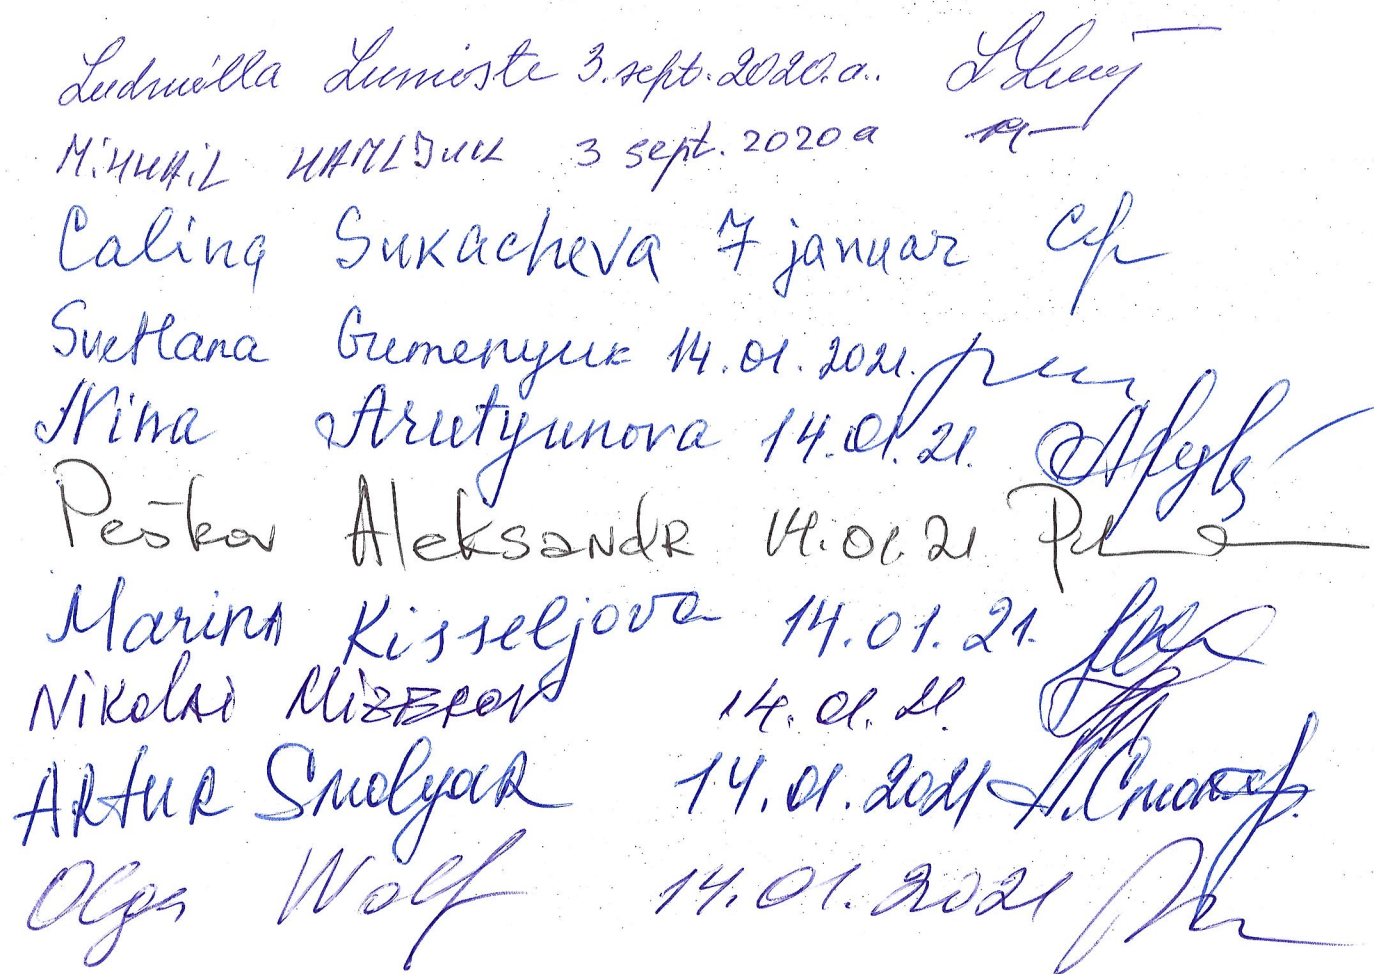 Ludmilla Lumiste 3. sept. 2020.a.
MiHHAiL HAMLJUK 3 sept. 2020 a
Galina Sukacheva 7 januar
Svetlana Gumenyuk 14.01.2021.
Nina Arutyunova 14.01.21.
Peškov Aleksandr 14.01.21
Marina Kisseljova 14.01.21.
Nikolai 14.01.21.
Artur Smolyar 14.01.2021
Olga Wolf 14.01.2021